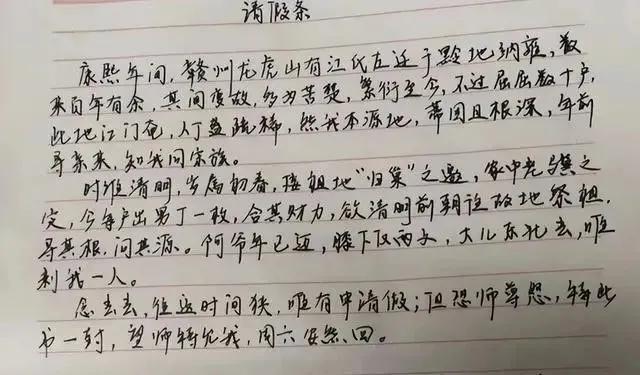 请假条
康熙年间，赣州龙虎山有江氏左迁于黔地纳雍，数
来百年有余，其间变故，多为苦楚，繁衍至今，不过屈屈数十户，
此地江门奄，人丁益疏稀，然我本源地，蒂固且根深，年前
寻亲来，知我同宗族。
时维清明，岁属初春，接祖地“归巢”之邀，家中老
定，今每户出男丁一枚，合其财力，欲清明前朝往故地祭祖，
寻其根，问其源。何爷年已迈，膝下仅两丈，大儿东北去，唯
剩我一人。
念去去，往返时间狭，唯有申请假；但恐师尊怒，特此
书一封，望师特允我，周六安然回。